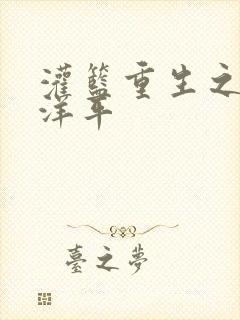 灌籃重生之
洋平
臺之夢